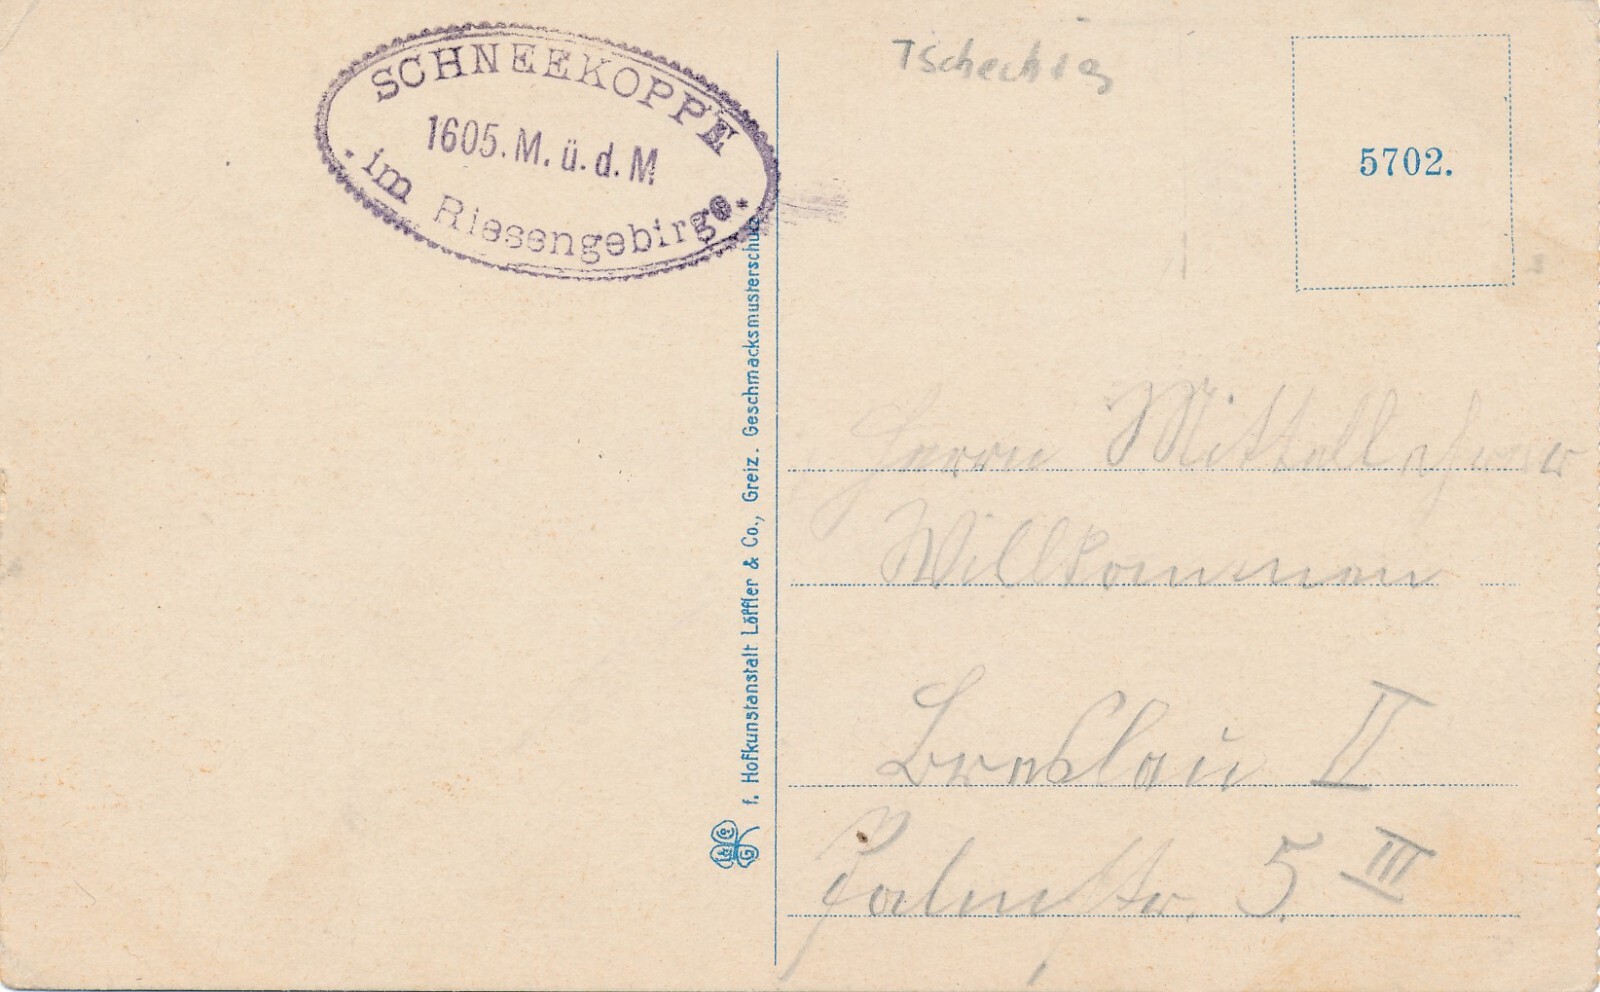 SCHNEEKOPPE
1605. M. ü. d. M
im Riesengebirge.
f. Hofkunstanstalt Löffler & Co., Greiz. Geschmacksmusterschutz
5702.
Herrn
Willkommen
Breslau II
Palmstr. 5. III